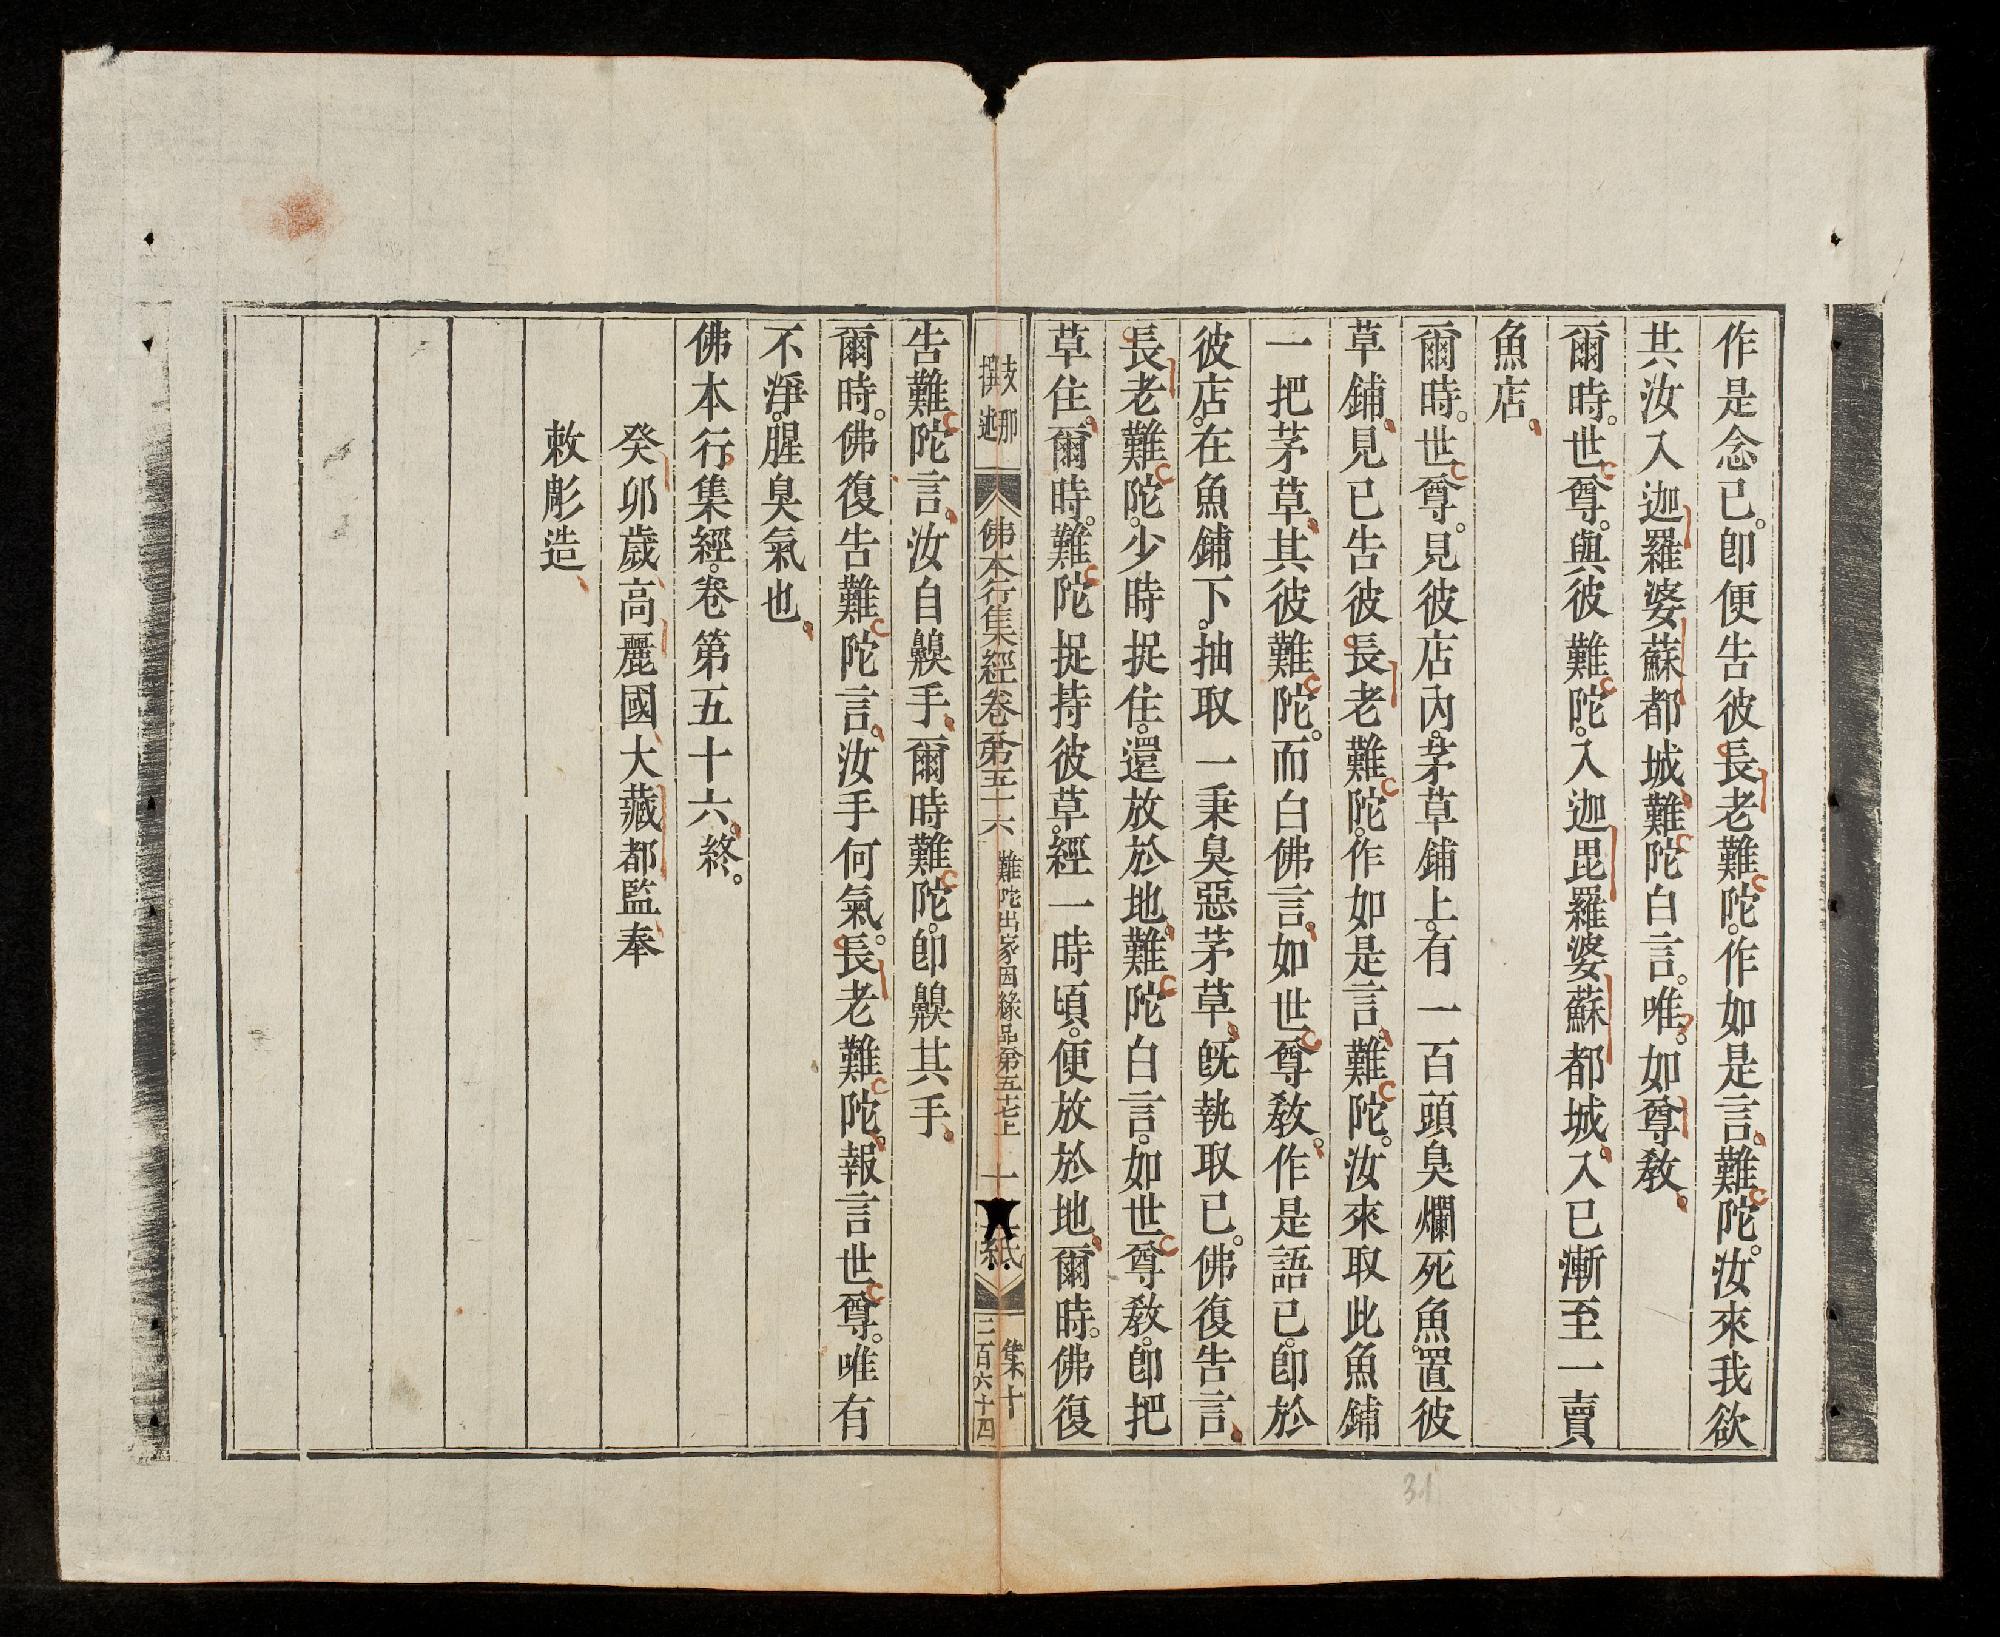 作是念已。卽便告彼長老難陀。作如是言、難陀。汝來我欲
共汝入迦羅婆蘇都城、難陀白言。唯。如尊敎、
爾時。世尊。與彼難陀。入迦毘羅婆蘇都城、入已漸至一賣
魚店、
爾時。世尊。見彼店內。茅草鋪上。有一百頭臭爛死魚。置彼
草鋪、見已告彼長老難陀。作如是言、難陀。汝來取此魚鋪
一把茅草、其彼難陀。而白佛言、如世尊敎。作是語已。卽於
彼店。在魚鋪下。抽取一秉臭惡茅草、旣執取已。佛復告言、
長老難陀。少時捉住。還放於地、難陀白言。如世尊敎。卽把
草住、爾時。難陀捉持彼草。經一時頃。便放於地、爾時。佛復
支那
撰述
佛本行集經卷第五十六
難陀出家因緣品第五十七上
紙
集十
三百六十四
告難陀言、汝自齅手、爾時難陀。卽齅其手、
爾時。佛復告難陀言、汝手何氣。長老難陀、報言世尊。唯有
不淨。腥臭氣也、
佛本行集經。卷第五十六、終。
癸卯歲、高麗國、大藏都監、奉
敕彫造、
31